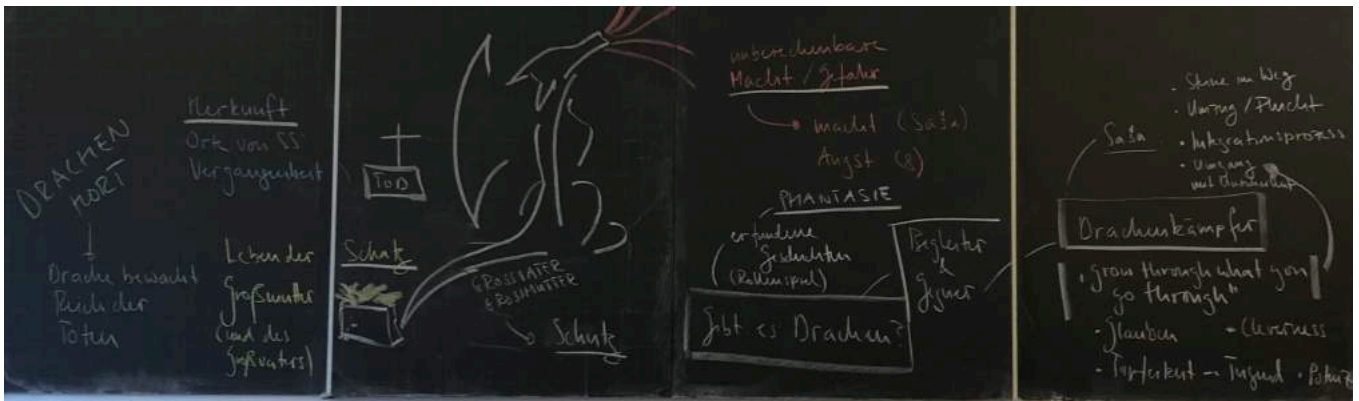 DRACHEN
HORT
Drache bewacht
Reich der
Toten
Herkunft
Orte von SS
Vergangenheit
Leben der
Großmutter
(und des
Großvaters)
TOD
Schatz
GROSSVATER
GROSSMUTTER
Schutz
unberechenbare
Macht / Gefahr
macht (Saša)
Angst (8)
PHANTASIE
erfundene
Geschichten
(Rollenspiel)
Gibt es Drachen?
Begleiter
&
Gegner
Saša
· Steine im Weg
· Umzug / Flucht
· Integrationsprozess
· Umgang
mit
Drachenkämpfer
"grow through what you
go through"
- Glauben
- Cleverness
- Tapferkeit → Tugend